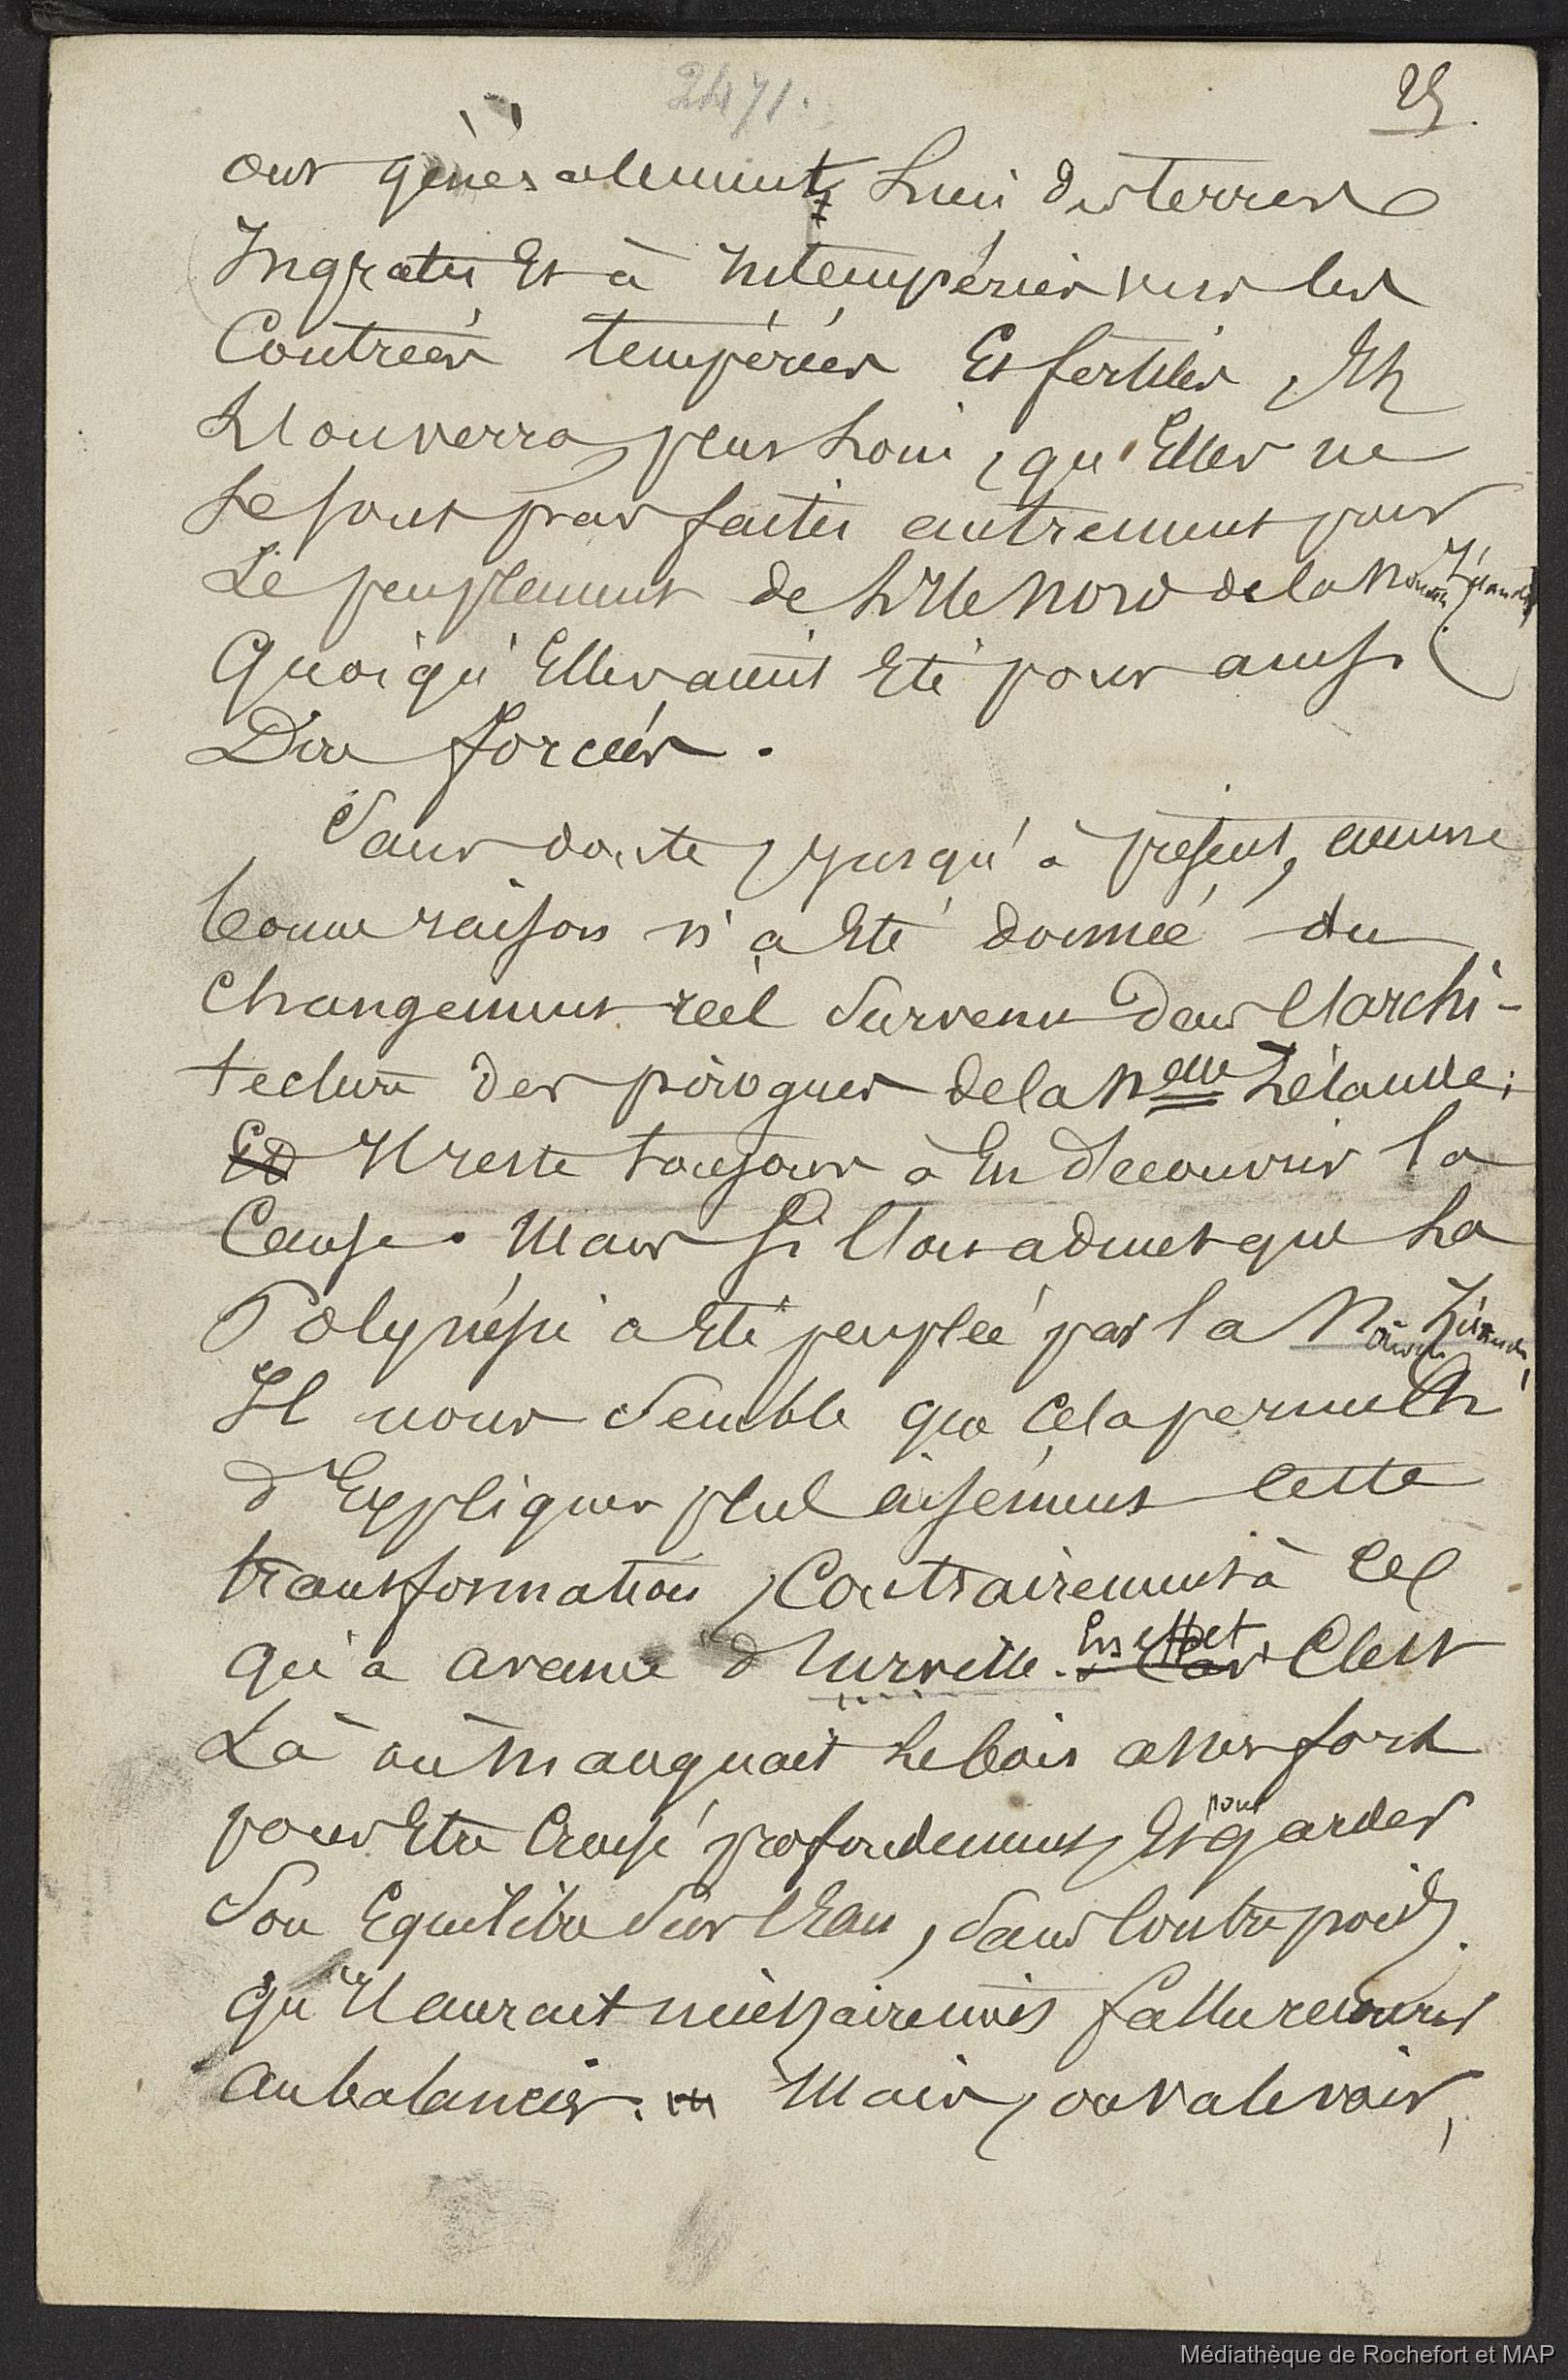 2471.
25.
ont généralement suivi des terres
Ingrates Et à intempéries vers les
Contrées tempérées Et fertiles, Et
L'on verra plus loin, qu'Elles ne
Se sont pas faites autrement pour
Le peuplement de L'Ile Nord de la Nouvelle Zélande
Quoiqu'Elles aient Eté pour ainsi
Dire forcées.
Sans doute, jusqu'à présent, aucune
bonne raison n'a Eté donnée du
Changement réel Survenu dans l'archi-
tecture des pirogues de la Nelle Zélande;
Et Il reste toujours à En découvrir la
Cause. Mais Si l'on admet que La
Polynésie a Eté peuplée par la Nouvelle Zélande,
Il nous Semble que cela permet
d'Expliquer plus aisément cette
transformation, Contrairement à ce
qu'a avancé d'Urville. En effet Car C'est
Là où manquait Le bois assez fort
pour Etre Creusé profondement, Et pour garder
Son Equilibre Sur l'Eau, Sans Contre poids.
qu'Il aurait nécessairement fallu recourir
au balancier. Mais, on va le voir,
Médiathèque de Rochefort et MAP